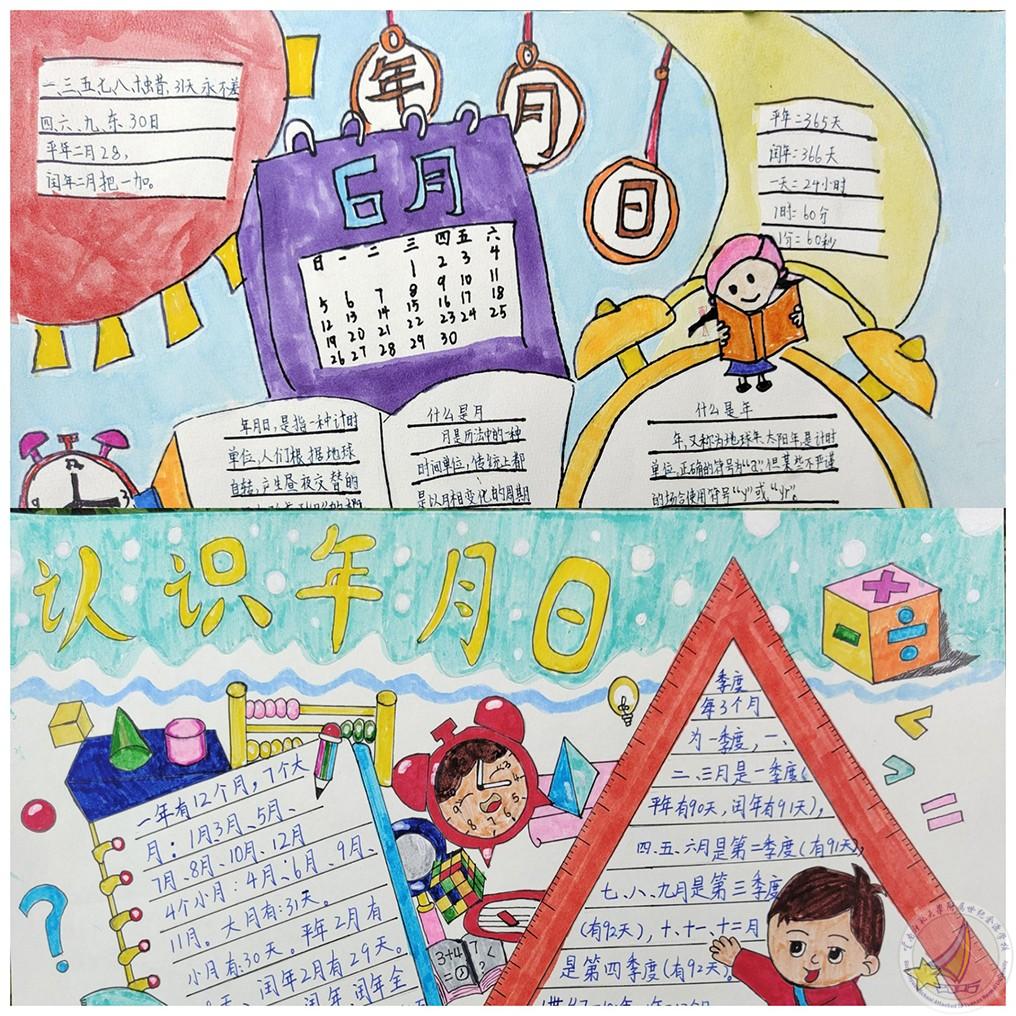 一、三、五、七、八、十、腊, 31天永不差
四、六、九、冬 30日
平年二月28,
闰年二月把一加。
年
月
日
6月
日 一 二 三 四 五 六
1 2 3 4
5 6 7 8 9 10 11
12 13 14 15 16 17 18
19 20 21 22 23 24 25
26 27 28 29 30
平年=365天
闰年=366天
一天=24小时
1时=60分
1分=60秒
年月日,是指一种计时
单位,人们根据地球
自转,产生昼夜交替的
什么是月
月是历法中的一种
时间单位,传统上都
是以月相变化的周期
什么是年
年,又称为地球年、太阳年,是计时
单位,正确的符号为"a",但某些不严谨
的场合使用符号"y"或"yr"。
认识年月日
一年有12个月,7个大
月:1月3月、5月、
7月、8月、10月、12月
4个小月:4月、6月、9月、
11月。大月有:31天。
小月有:30天。平年2月有
天、闰年2月有29天。
3+4
=
?
季度
每3个月
为一季度,一、
二、三月是一季度(
平年有90天,闰年有91天),
四、五、六月是第二季度(有91天),
七、八、九月是第三季度
(有92天),十、十一、十二月
是第四季度(有92天)。
?